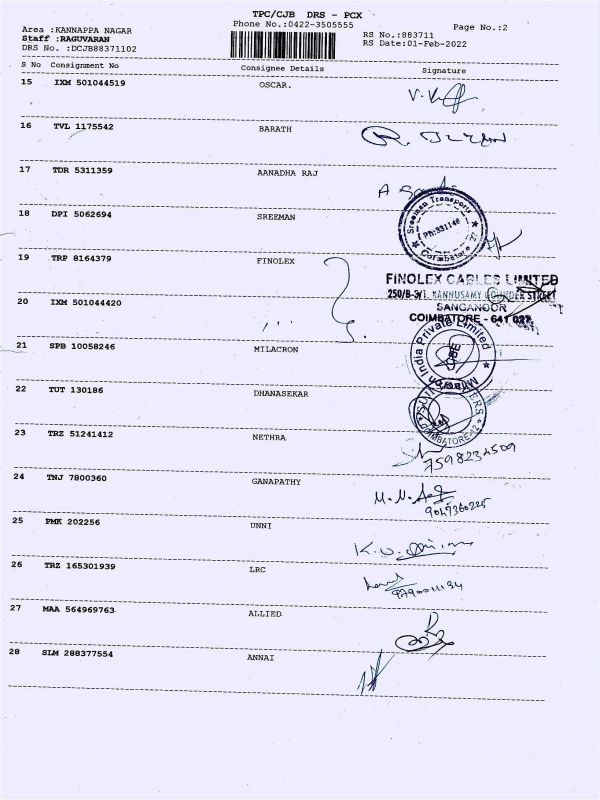 TPC/CJB DRS - PCX
Area :KANNAPPA NAGAR Phone No.:0422-3505555 Page No.:2
Staff :RAGUVARAN RS No.:883711
DRS No. :DCJB88371102 RS Date:01-Feb-2022
S No Consignment No Consignee Details Signature
15 IXM 501044519 OSCAR.
16 TVL 1175542 BARATH
17 TDR 5311359 AANADHA RAJ
18 DPI 5062694 SREEMAN
Sreeman Transports
Ph:331146
Coimbatore
19 TRP 8164379 FINOLEX
FINOLEX CABLES LIMITED
250/B-5/1, KANNUSAMY GOUNDER STREET
20 IXM 501044420
SANGANOOR
COIMBATORE - 641 027
21 SPB 10058246 MILACRON
Milacron India Private Limited
CBE
22 TUT 130186 DHANASEKAR
COIMBATORE-12
23 TRZ 51241412 NETHRA
7598234509
24 TNJ 7800360 GANAPATHY
25 PMK 202256 UNNI
26 TRZ 165301939 LRC
27 MAA 564969763 ALLIED
28 SLM 288377554 ANNAI